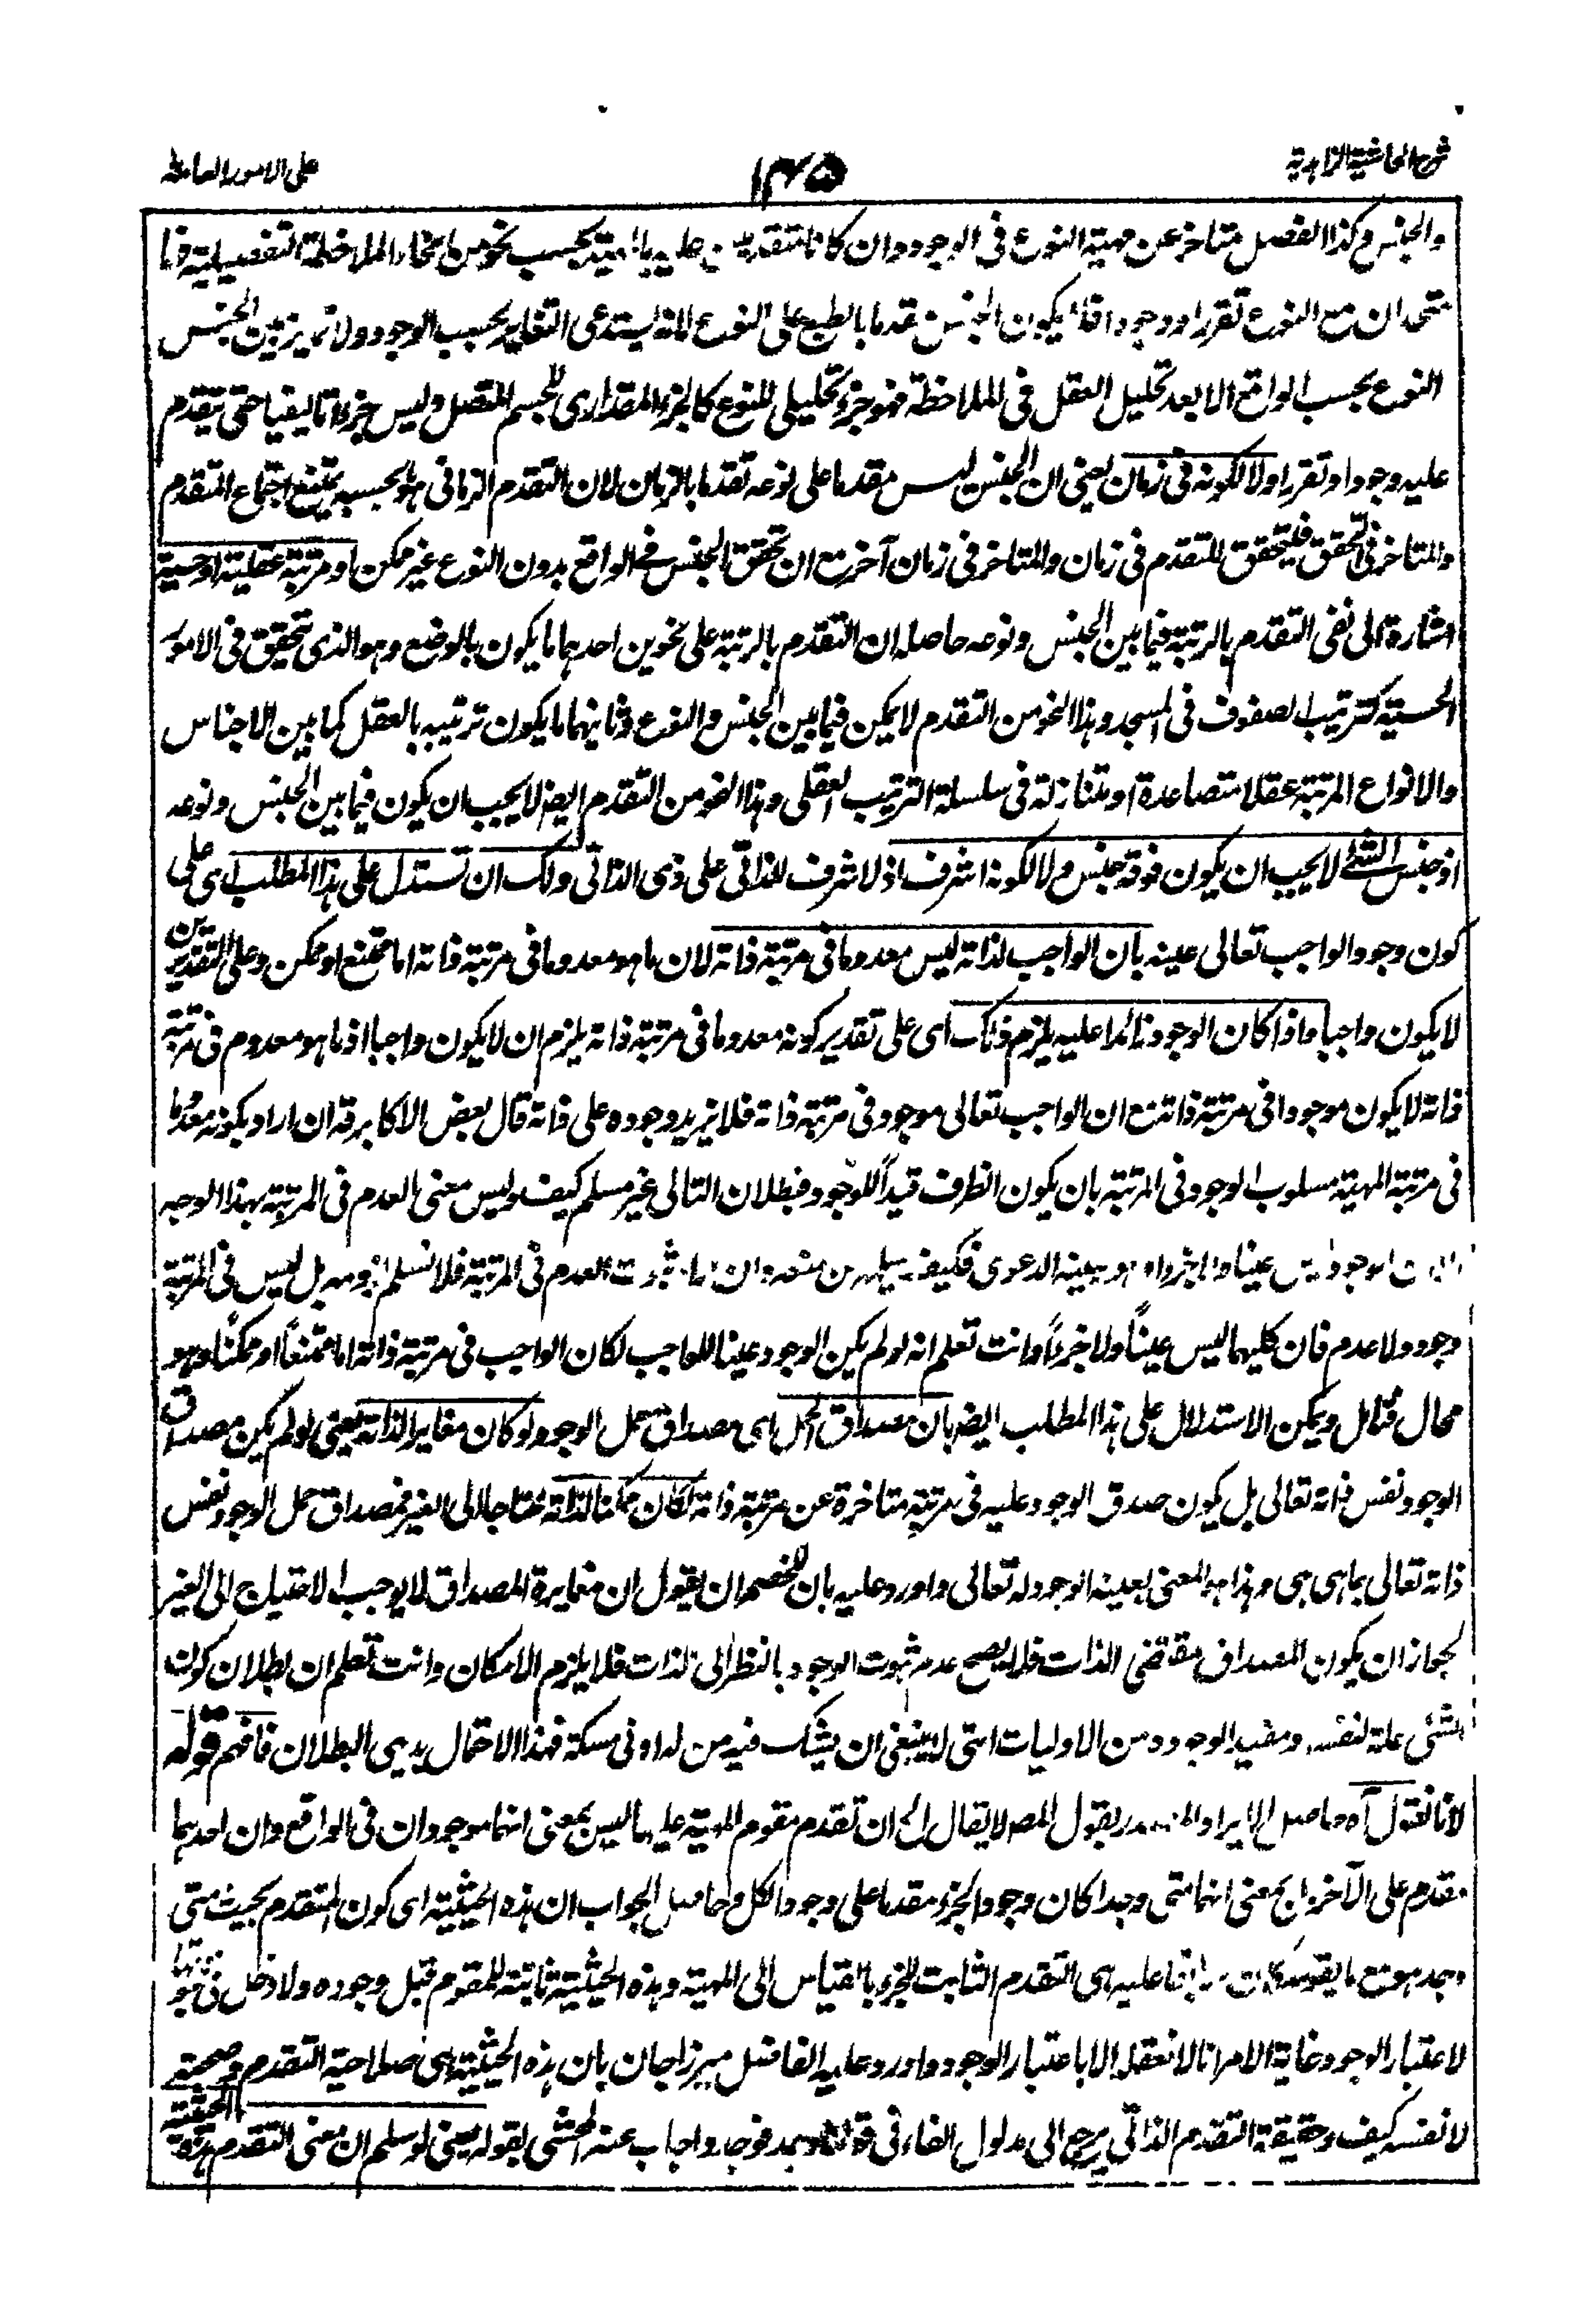 شرح الحاشية الزاهدية
١٣٥
على الامور العامة
والجنس وكذا الفصل متاخر عن مهية النوع فى الوجود وان كانا متقدمين عليه بحسب نحو من انحاء الملاحظة التفصيلية
متحدان مع النوع تقررا ووجودا فلا يكون الجنس مقدما بالطبع على النوع لانه يستدعى التغاير بحسب الوجود ولا تميز بين الجنس
النوع بحسب الواقع الا بعد تحليل العقل فى الملاحظة فهو جزء تحليلى للنوع كالجزء المقدارى للجسم المتصل وليس جزءا تاليفيا حتى يتقدم
عليه وجودا وتقررا ولا لكونه فى زمان يعنى ان الجنس ليس مقدما على نوعه تقدما بالزمان لان التقدم الزمانى ما بحسبه يمتنع اجتماع المتقدم
والمتاخر فى التحقق فيتحقق المتقدم فى زمان والمتاخر فى زمان آخر مع ان تحقق الجنس فى الواقع بدون النوع غير ممكن او مرتبة عقلية او حسية
اشارة الى نفى التقدم بالرتبة فيما بين الجنس ونوعه حاصله ان التقدم بالرتبة على نحوين احدهما ما يكون بالوضع وهو الذى تحقق فى الامور
الحسية كترتيب الصفوف فى المسجد وهذا النحو من التقدم لا يمكن فيما بين الجنس والنوع وثانيهما ما يكون ترتيبه بالعقل كما بين الاجناس
والانواع المرتبة عقلا متصاعدة او متنازلة فى سلسلة الترتيب العقلى وهذا النحو من التقدم ايضا لا يجب ان يكون فيما بين الجنس ونوعه
اذ جنس الشئ لا يجب ان يكون فوقه جنس ولا لكونه اشرف اذ لا شرف للذاتى على ذى الذاتى ولك ان تستدل على هذا المطلب اى على
كون وجود الواجب تعالى عينه بان الواجب لذاته ليس معدوما فى مرتبة ذاته لان ما هو معدوما فى مرتبة ذاته اما ممتنع او ممكن وعلى التقديرين
لا يكون واجبا واذا كان الوجود زائدا عليه يلزم ذلك اى على تقدير كونه معدوما فى مرتبة ذاته يلزم ان لا يكون واجبا اذ ما هو معدوم فى مرتبة
ذاته لا يكون موجودا فى مرتبة ذاته مع ان الواجب تعالى موجود فى مرتبة ذاته فلا يزيد وجوده على ذاته قال بعض الاكابر قه ان اراد بكونه معدوما
فى مرتبة المهية مسلوب الوجود فى المرتبة بان يكون الظرف قيداً للوجود فبطلان التالى غير مسلم كيف وليس معنى العدم فى المرتبة بهذا الوجه
الوجود ليس عينا بعينه الدعوى فكيف يسلم من منعه وان ثبوت العدم فى المرتبة فلا نسلم لزومه بل ليس فى المرتبة
وجود ولا عدم فان كليهما ليس عيناً ولا جزءاً وانت تعلم انه لو لم يكن الوجود عينا للواجب لكان الواجب فى مرتبة ذاته اما ممتنعاً او ممكناً وهو
محال فتامل ويمكن الاستدلال على هذا المطلب ايضا بان مصداق الحمل اى مصداق حمل الوجود لو كان مغايرا لذاته يعنى لو لم يكن مصداق
الوجود نفس ذاته تعالى بل يكون صدق الوجود عليه فى مرتبة متاخرة عن مرتبة ذاته لكان ممكنا لذاته محتاجا الى الغير فمصداق حمل الوجود نفس
ذاته تعالى بما هى هى وهذا هو المعنى بعينية الوجود له تعالى واورد عليه بان للخصم ان يقول ان مغايرة المصداق لا يوجب الاحتياج الى الغير
لجواز ان يكون المصداق مقتضى الذات فلا يصح عدم ثبوت الوجود بالنظر الى الذات فلا يلزم الامكان وانت تعلم ان بطلان كون
الشئ علة لنفسه ومفيد الوجود من الاوليات التى لا ينبغى ان يشك فيه من له ادنى مسكة فهذا الاحتمال بديهى البطلان فافهم قوله
لانا نقول آه حاصل الايراد المصدر بقول المص لا يقال الخ ان تقدم مقوم المهية عليها ليس بمعنى انهما موجودان فى الواقع وان احدهما
مقدم على الآخر بل بمعنى انهما متى وجدا كان وجود الجزء مقدما على وجود الكل وحاصل الجواب ان هذه الحيثية اى كون المتقدم بحيث متى
وجد هو مع ما يقومه كان سابقا عليه هى التقدم الثابت للجزء بالقياس الى المهية وهذه الحيثية ثابتة للمقوم قبل وجوده ولا دخل فى ثبوتها
لاعتبار الوجود غاية الامر انا لا نعقلها الا باعتبار الوجود واورد عليه الفاضل ميرزا جان بان هذه الحيثية هى صلاحية التقدم وصحته
لا نفسه كيف وحقيقة التقدم الذاتى يرجع الى مدلول الفاء فى قولنا وجد فوجد واجاب عنه المحشى بقوله يعنى لو سلم ان معنى التقدم هذه الحيثية